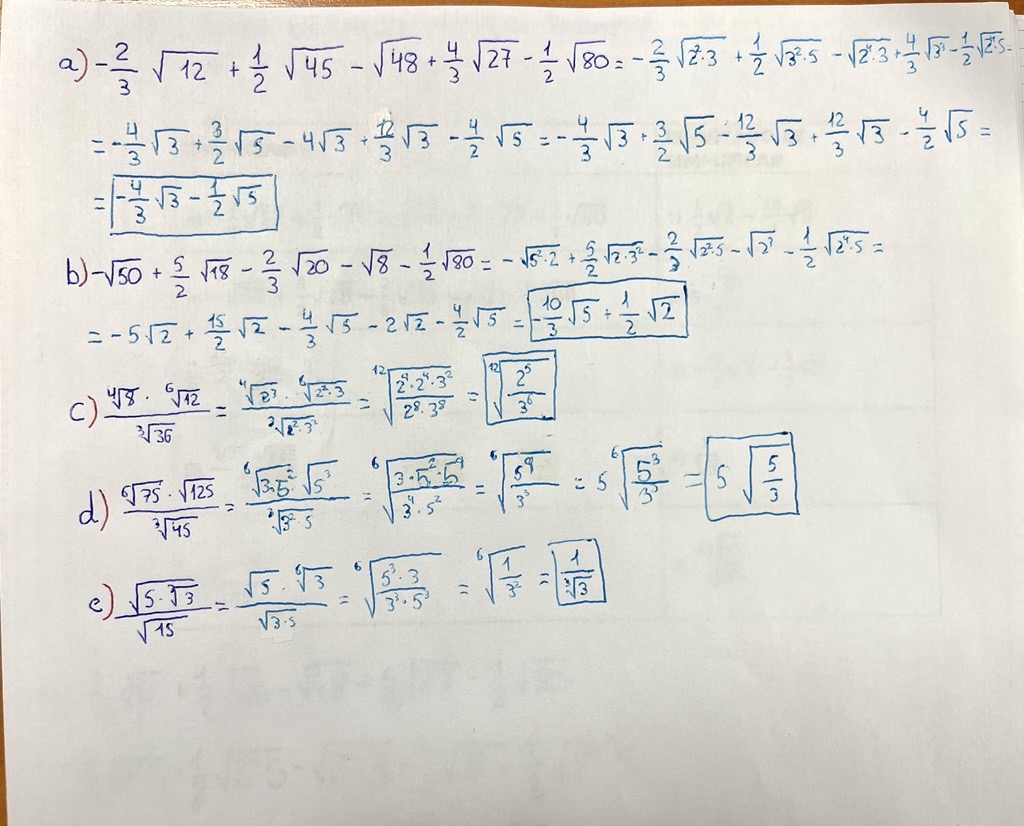 a) -2/3 √12 + 1/2 √45 - √48 + 4/3 √27 - 1/2 √80 = -2/3 √(2²·3) + 1/2 √(3²·5) - √(2⁴·3) + 4/3 √3³ - 1/2 √(2⁴·5) =
= -4/3 √3 + 3/2 √5 - 4√3 + 12/3 √3 - 4/2 √5 = -4/3 √3 + 3/2 √5 - 12/3 √3 + 12/3 √3 - 4/2 √5 =
= -4/3 √3 - 1/2 √5
b) -√50 + 5/2 √18 - 2/3 √20 - √8 - 1/2 √80 = -√(5²·2) + 5/2 √(2·3²) - 2/3 √(2²·5) - √2³ - 1/2 √(2⁴·5) =
= -5√2 + 15/2 √2 - 4/3 √5 - 2√2 - 4/2 √5 = -10/3 √5 + 1/2 √2
c) (⁴√8 · ⁶√12)/(³√36) = (⁴√2³ · ⁶√(2²·3))/(³√(2²·3²)) = ¹²√((2⁹·2⁴·3²)/(2⁸·3⁸)) = ¹²√(2⁵/3⁶)
d) (⁶√75 · √125)/(³√45) = (⁶√(3·5²) · √5³)/(³√(3²·5)) = ⁶√((3·5²·5⁹)/(3⁴·5²)) = ⁶√(5⁹/3³) = 5 ⁶√(5³/3³) = 5 √(5/3)
e) √(5·³√3)/√15 = (√5 · ⁶√3)/√(3·5) = ⁶√((5³·3)/(3³·5³)) = ⁶√(1/3²) = 1/³√3